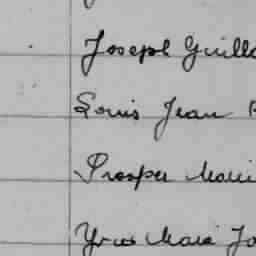 Joseph Guill
Louis Jean
Prosper
Yves Marie